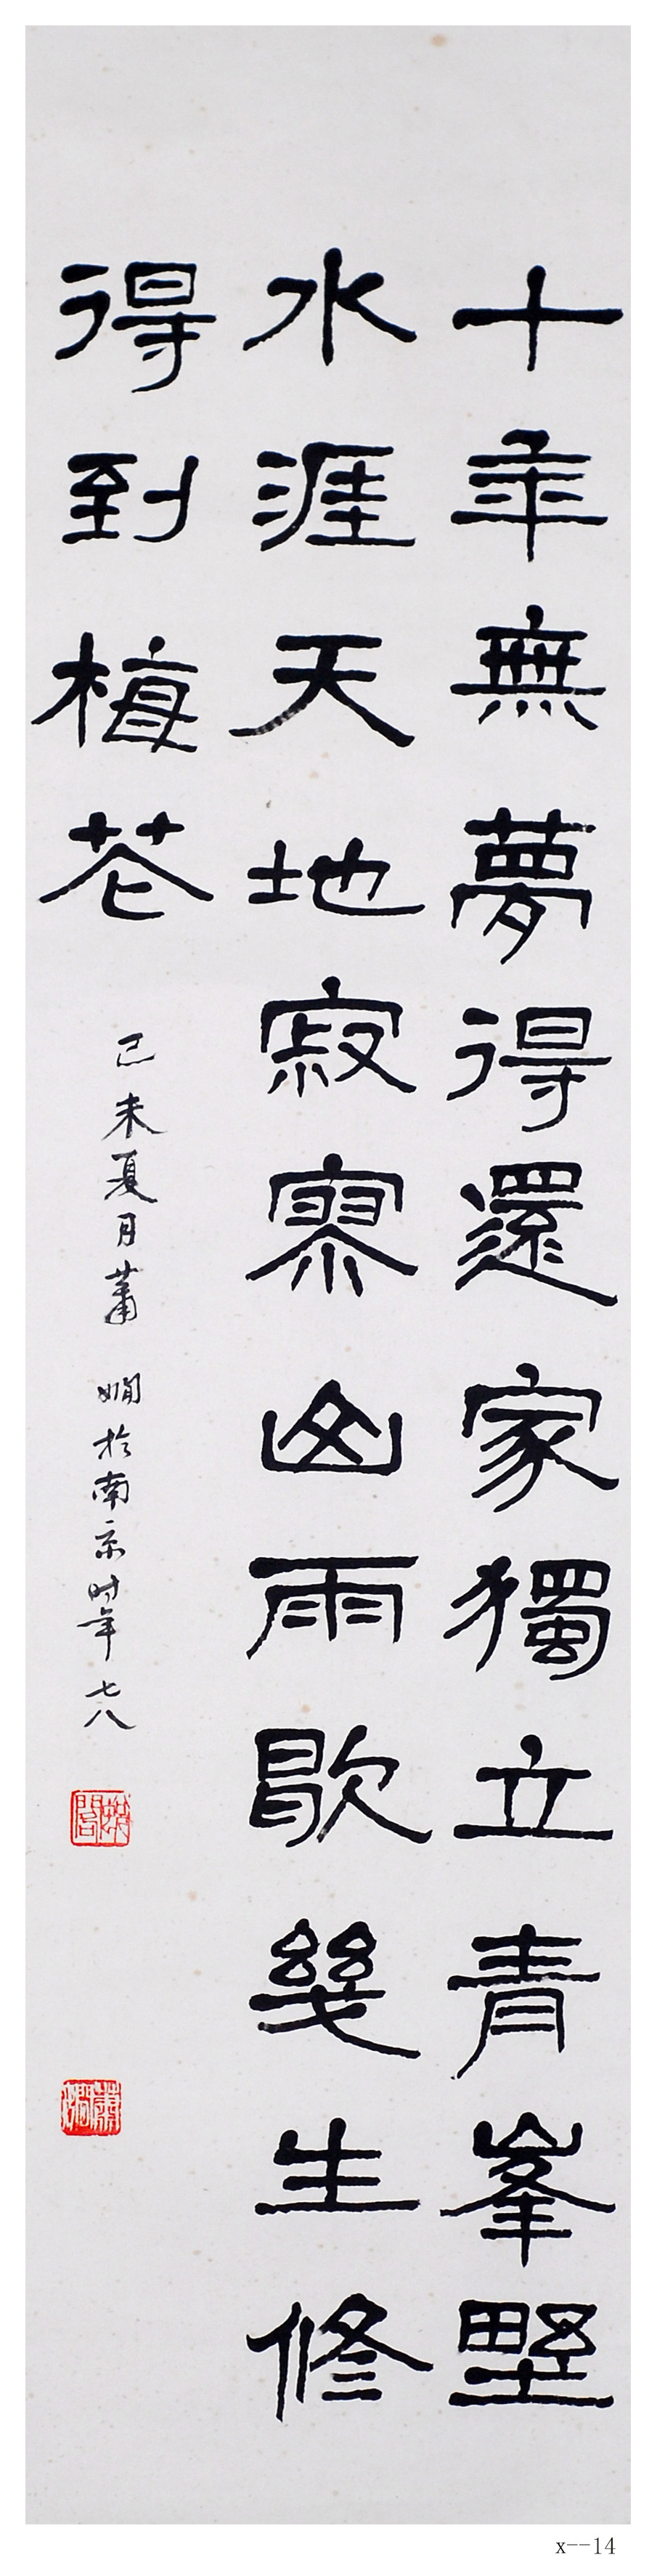 十年無夢得還家獨立青峯野
水涯天地寂寥山雨歇幾生修
得到梅花
己未夏月蕭嫻於南京时年七八
蕭嫻
x--14